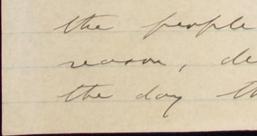 the people
reason, de
the day th